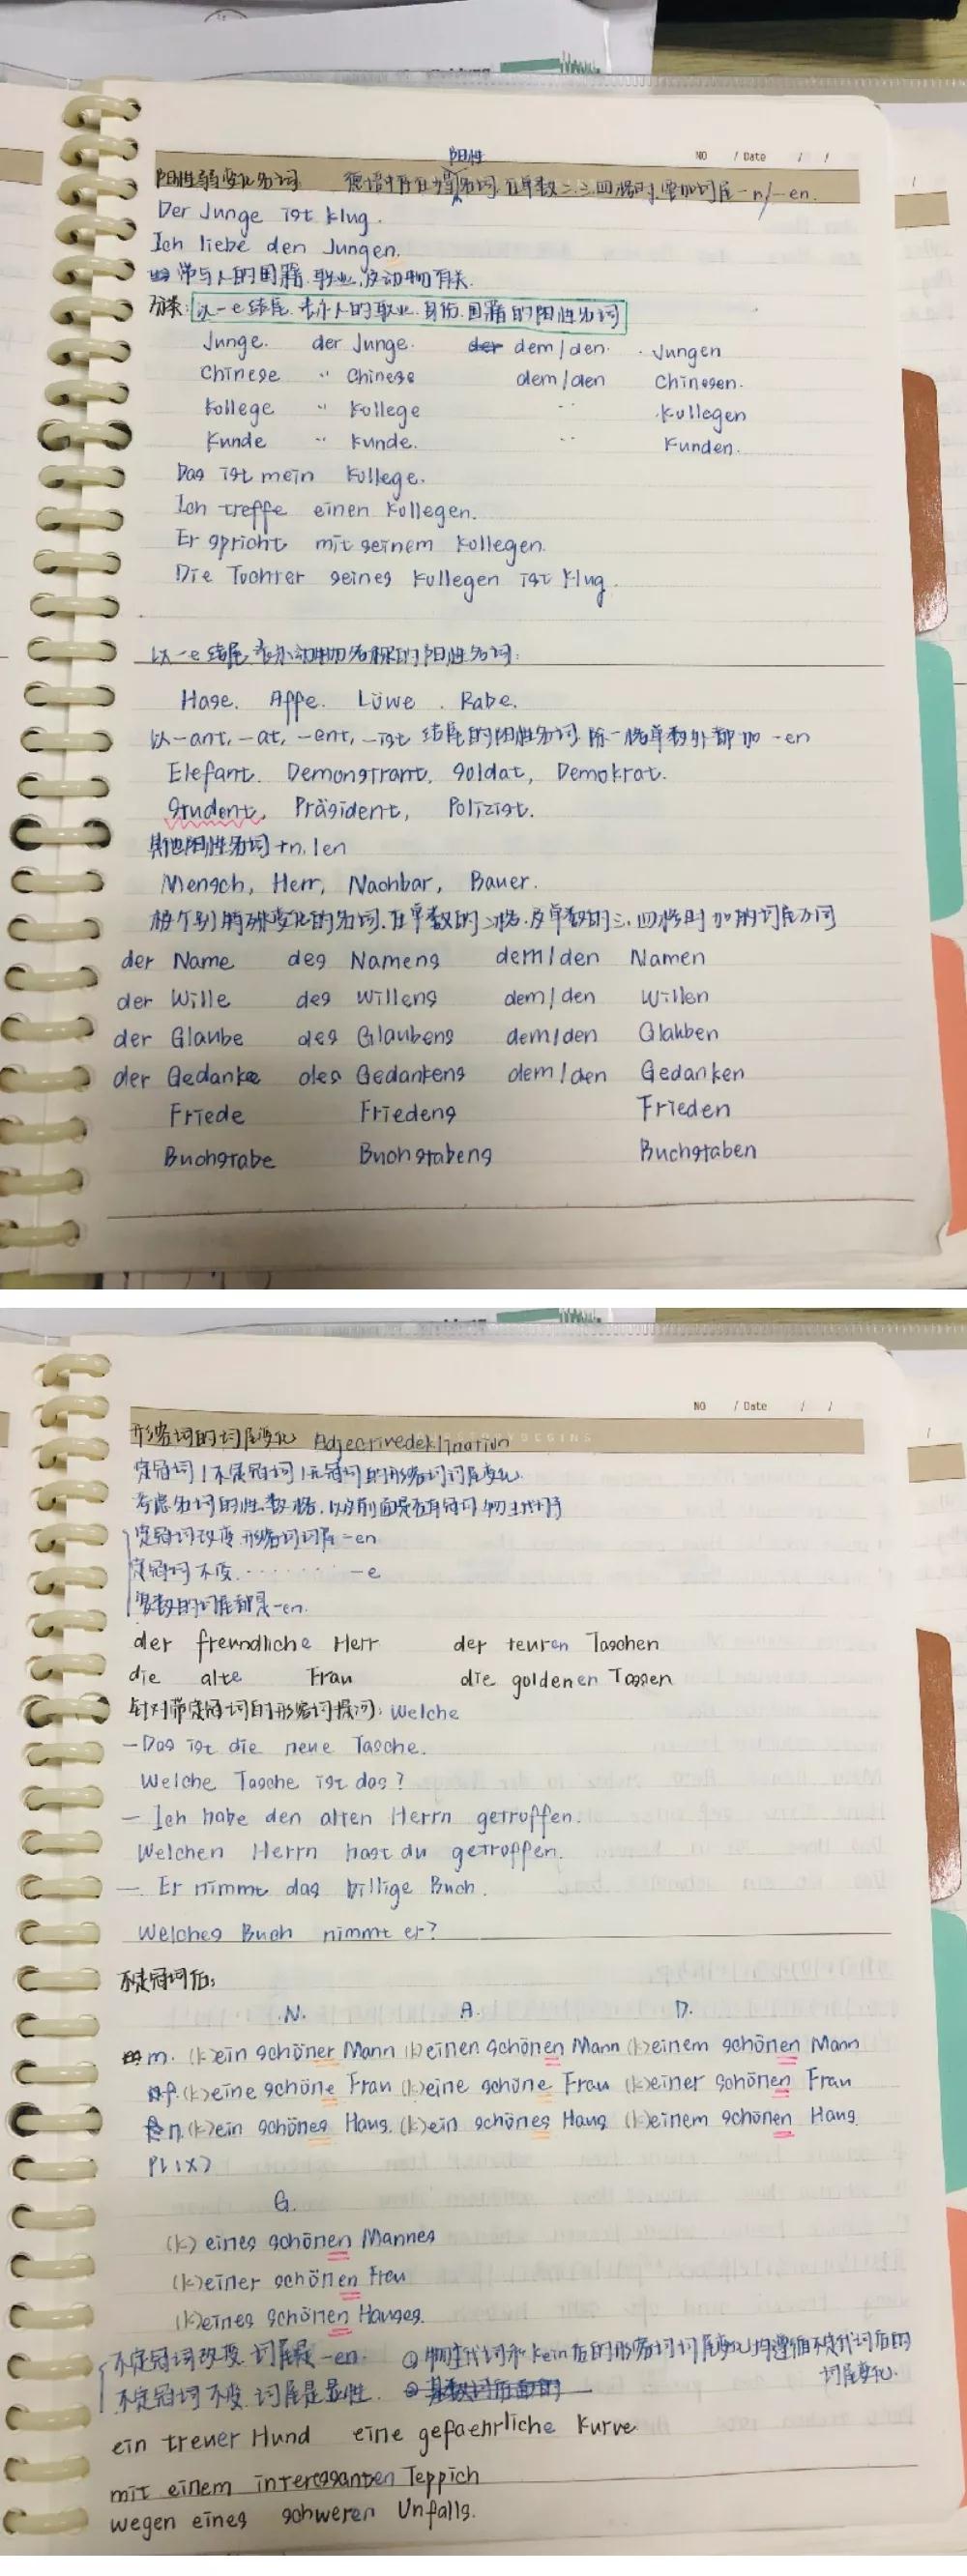 阳性
NO / Date / /
阳性弱变化名词 德语中存在些名词,在单数二、三、四格时,要加词尾-n/-en.
Der Junge ist klug.
Ich liebe den Jungen.
常与人的国籍、职业及动物有关
分类: 以-e结尾,表示人的职业、身份、国籍的阳性名词
Junge. der Junge. dem/den. Jungen
Chinese " Chinese dem/den Chinesen.
Kollege " Kollege " Kollegen
Kunde " Kunde. " Kunden.
Das ist mein Kollege.
Ich treffe einen Kollegen.
Er spricht mit seinem Kollegen.
Die Tochter seines Kollegen ist klug.
以-e结尾,表示动物名称的阳性名词:
Hase. Affe. Löwe. Rabe.
以-ant, -at, -ent, -ist 结尾的阳性名词,除一格单数外都加-en
Elefant. Demonstrant, Soldat, Demokrat.
Student, Präsident, Polizist.
其他阳性名词+n, /en
Mensch, Herr, Nachbar, Bauer.
个别特殊变化的名词,在单数的二格,及单数的三、四格时加的词尾不同
der Name des Namens dem/den Namen
der Wille des Willens dem/den Willen
der Glaube des Glaubens dem/den Glauben
der Gedanke des Gedankens dem/den Gedanken
Friede Friedens Frieden
Buchstabe Buchstabens Buchstaben
NO / Date / /
形容词的词尾变化 Adjectivedeklination
定冠词/不定冠词/无冠词的形容词词尾变化
考虑名词的性、数、格,以及前面是否有冠词、物主代词
定冠词改变,形容词词尾-en
定冠词不变 ········ -e
复数的词尾都是-en.
der freundliche Herr der teuren Taschen
die alte Frau die goldenen Tassen
针对带定冠词的形容词提问: Welche
-Das ist die neue Tasche.
Welche Tasche ist das?
- Ich habe den alten Herrn getroffen.
Welchen Herrn hast du getroffen.
- Er nimmt das billige Buch.
Welches Buch nimmt er?
不定冠词后:
N. A. D.
m. (k)ein schöner Mann (k)einen schönen Mann (k)einem schönen Mann
f. (k)eine schöne Frau (k)eine schöne Frau (k)einer schönen Frau
n. (k)ein schönes Haus. (k)ein schönes Haus (k)einem schönen Haus.
Pl (X)
G.
(k) eines schönen Mannes
(k)einer schönen Frau
(k)eines schönen Hauses.
不定冠词改变 词尾是-en. ① 物主代词和kein后的形容词词尾变化均遵循不定代词后的
词尾变化.
不定冠词不变 词尾是显性. ②
ein treuer Hund eine gefaehrliche Kurve
mit einem interessanten Teppich
wegen eines schweren Unfalls.